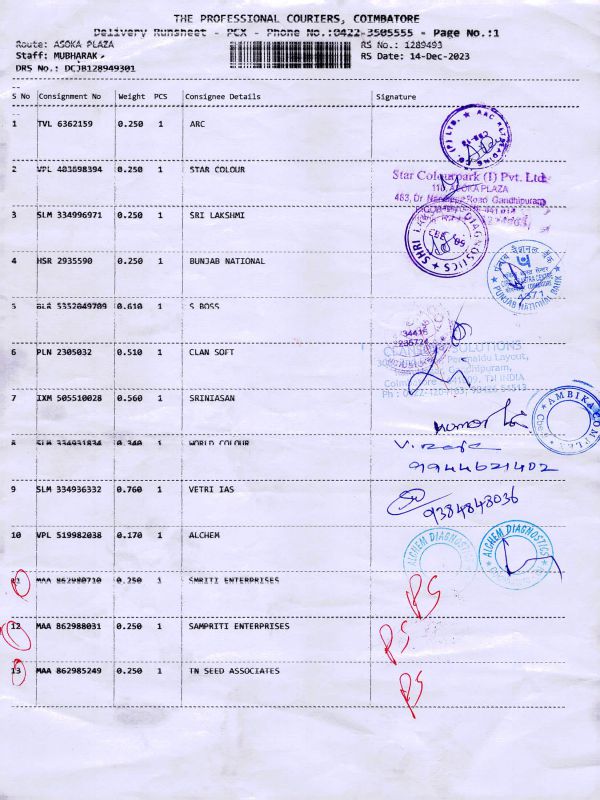 THE PROFESSIONAL COURIERS, COIMBATORE
Delivery Runsheet - PCX - Phone No.:0422-3505555 - Page No.:1
Route: ASOKA PLAZA RS No.: 1289493
Staff: MUBHARAK RS Date: 14-Dec-2023
DRS No.: DCJB128949301
S No Consignment No Weight PCS Consignee Details Signature
1 TVL 6362159 0.250 1 ARC
2 VPL 403698394 0.250 1 STAR COLOUR
Star Colourpark (I) Pvt. Ltd
110, ASOKA PLAZA
483, Dr Road Gandhipuram
3 SLM 334996971 0.250 1 SRI LAKSHMI
DIAGNOSTICS
4 HSR 2935590 0.250 1 BUNJAB NATIONAL
पंजाब नैशनल बैंक
4371
PUNJAB NATIONAL BANK
5 BLR 5352049709 0.610 1 S BOSS
6 PLN 2305032 0.510 1 CLAN SOFT
SOLUTIONS
Layout,
Gandhipuram,
TN INDIA
7 IXM 505510028 0.560 1 SRINIASAN
AMBIKA
8 SLM 334931834 0.340 1 WORLD COLOUR
9944621402
9 SLM 334936332 0.760 1 VETRI IAS
9384848036
10 VPL 519982038 0.170 1 ALCHEM
ALCHEM DIAGNOSTICS
ALCHEM DIAGNOSTICS
11 MAA 862980710 0.250 1 SMRITI ENTERPRISES
RS
12 MAA 862988031 0.250 1 SAMPRITI ENTERPRISES
RS
13 MAA 862985249 0.250 1 TN SEED ASSOCIATES
RS